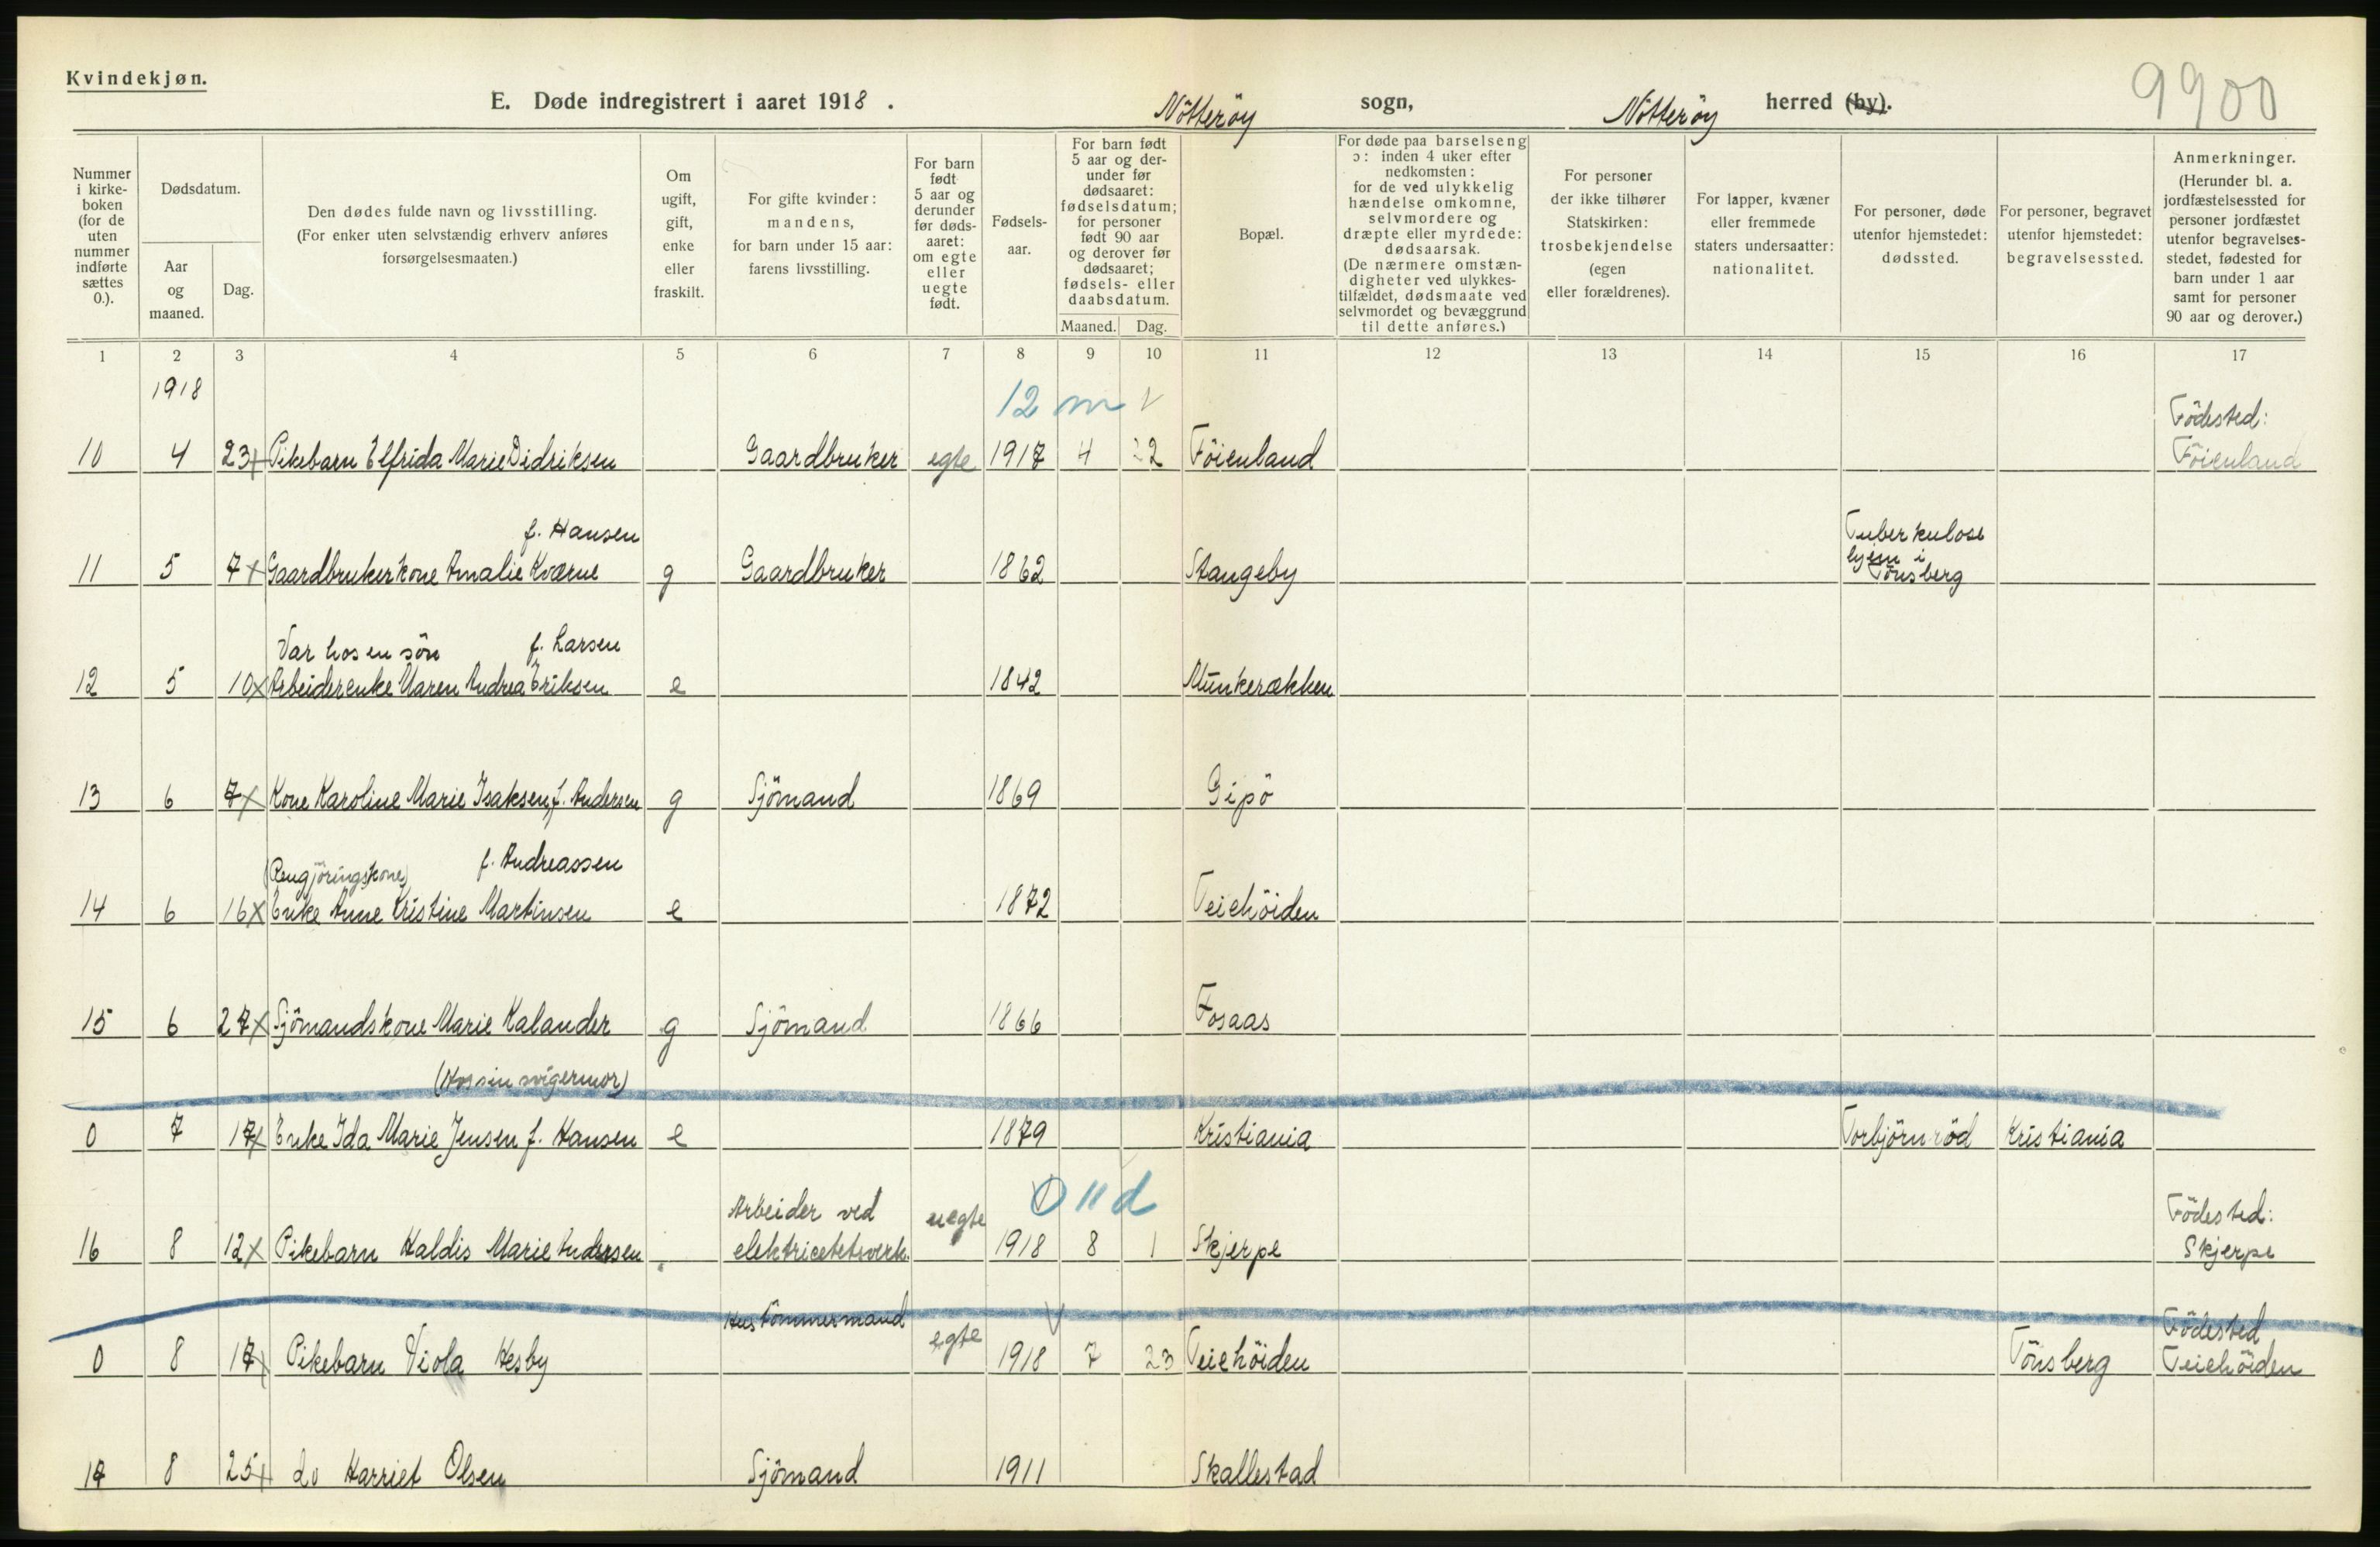 Kvindekjøn.
9900
E. Døde indregistrert i aaret 1918 . Nötteröy sogn, Nötteröy herred (by).
Nummer i kirkeboken (for de uten nummer indførte sættes 0.).
Dødsdatum.
Aar og maaned.
Dag.
Den dødes fulde navn og livsstilling.
(For enker uten selvstændig erhverv anføres
forsørgelsesmaaten.)
Om
ugift,
gift,
enke
eller
fraskilt.
For gifte kvinder:
mandens,
for barn under 15 aar:
farens livsstilling.
For barn
født
5 aar og
derunder
før døds-
aaret:
om egte
eller
uegte
født.
Fødsels-
aar.
For barn født
5 aar og der-
under før
dødsaaret:
fødselsdatum;
for personer
født 90 aar
og derover før
dødsaaret;
fødsels- eller
daabsdatum.
Maaned. Dag.
Bopæl.
For døde paa barselseng
ɔ: inden 4 uker efter
nedkomsten:
for de ved ulykkelig
hændelse omkomne,
selvmordere og
dræpte eller myrdede:
dødsaarsak.
(De nærmere omstæn-
digheter ved ulykkes-
tilfældet, dødsmaate ved
selvmordet og bevæggrund
til dette anføres.)
For personer
der ikke tilhører
Statskirken:
trosbekjendelse
(egen
eller forældrenes).
For lapper, kvæner
eller fremmede
staters undersaatter:
nationalitet.
For personer, døde
utenfor hjemstedet:
dødssted.
For personer, begravet
utenfor hjemstedet:
begravelsessted.
Anmerkninger.
(Herunder bl. a.
jordfæstelsessted for
personer jordfæstet
utenfor begravelses-
stedet, fødested for
barn under 1 aar
samt for personer
90 aar og derover.)
1 2 3 4 5 6 7 8 9 10 11 12 13 14 15 16 17
1918 12 m Födested:
10 4 23 Pikebarn Elfrida Marie Didriksen Gaardbruker egte 1917 4 22 Föienland Föienland
f. Hansen Tuberkulose
hjem i
11 5 7 Gaardbrukerkone Amalie Kværne g Gaardbruker 1862 Stangeby Tönsberg
Var hos en sön f. Larsen
12 5 10 Arbeiderenke Maren Andrea Eriksen e 1842 Munkerækken
13 6 7 Kone Karoline Marie Isaksen, f. Andersen g Sjömand 1869 Gipö
(Rengjöringskone) f. Andreassen
14 6 16 Enke Anne Kristine Martinsen e 1872 Teiehöiden
15 6 27 Sjömandskone Marie Kalander g Sjömand 1866 Fosaas
(Hos sin svigermor)
0 7 17 Enke Ida Marie Jensen f. Hansen e 1879 Kristiania Torbjörnröd Kristiania
Arbeider ved uegte 0 11 d Födested:
16 8 12 Pikebarn Haldis Marie Andersen elektricetetsverk. 1918 8 1 Skjerpe Skjerpe
Hustömmermand egte Födested
0 8 17 Pikebarn Viola Hesby 1918 7 23 Teiehöiden Tönsberg Teiehöiden
17 8 25 do Harriet Olsen Sjömand 1911 Skallestad